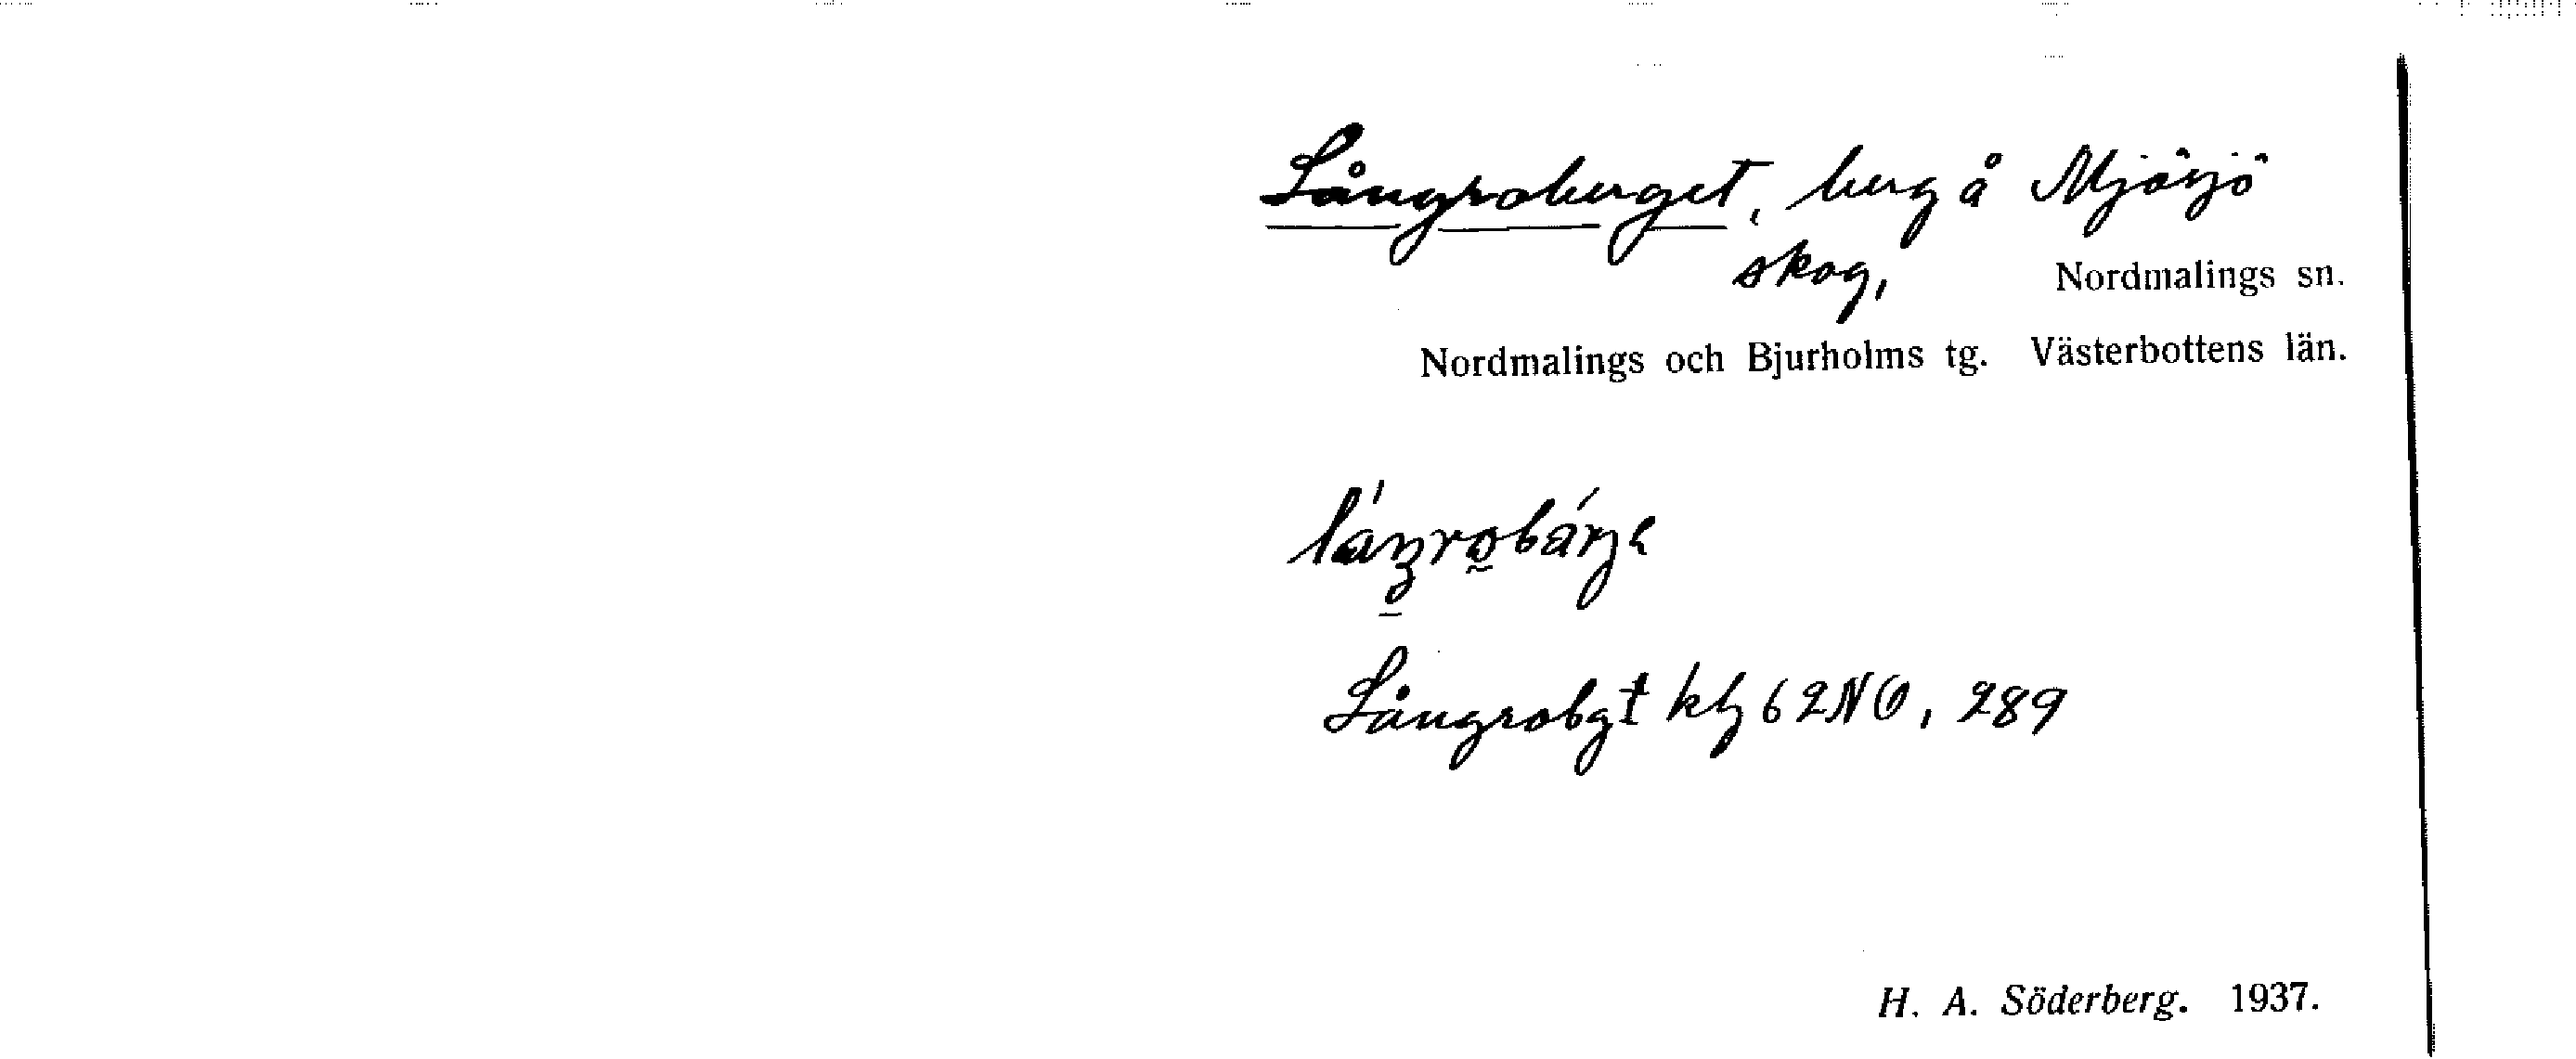 Långroberget, berg å Mjösjö
skog, Nordmalings sn.
Nordmalings och Bjurholms tg. Västerbottens län.
Långrobgt 62NO, 289
H. A. Söderberg. 1937.